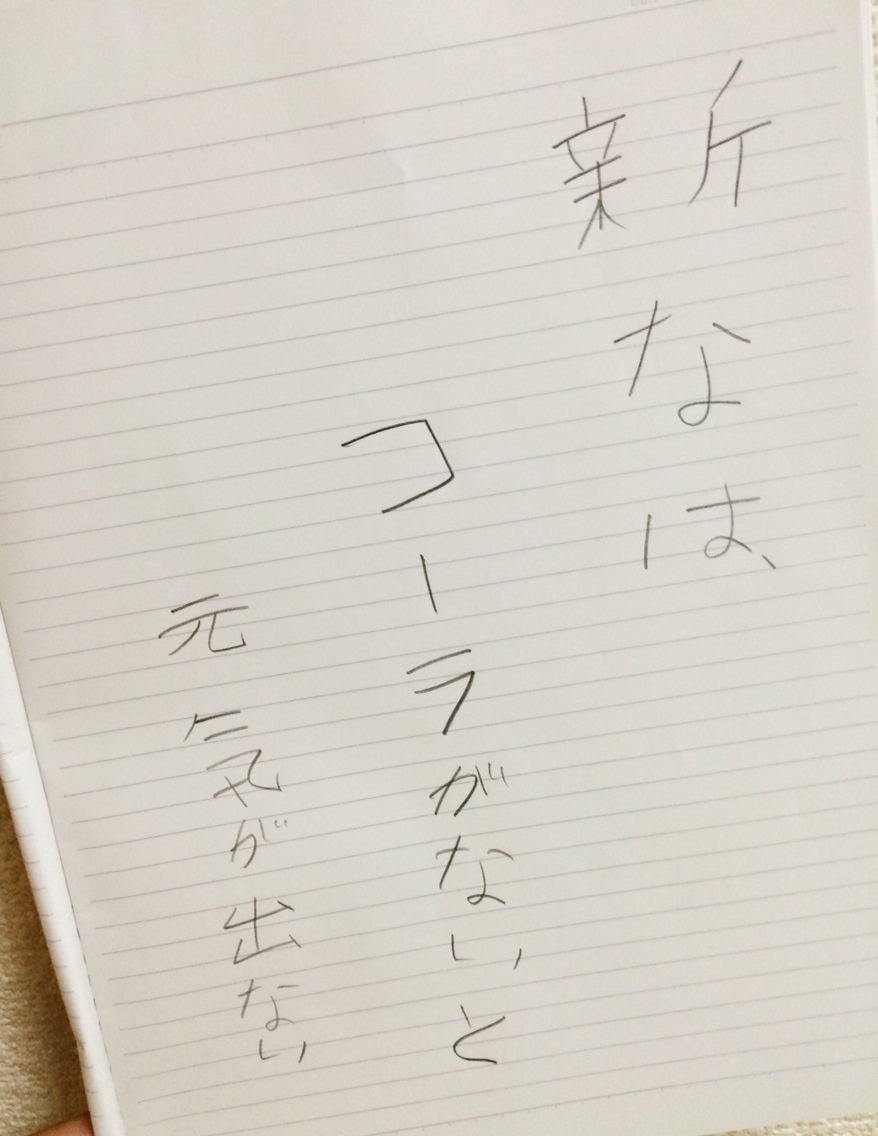 新なは、
コーラがないと
元気が出ない